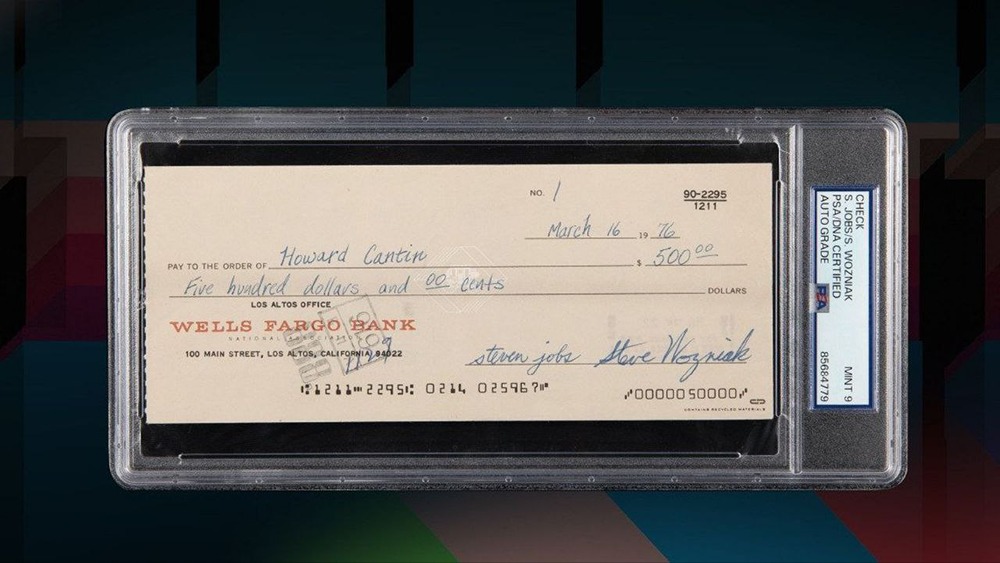 NO. 1
90-2295
1211
March 16 19 76
PAY TO THE ORDER OF Howard Cantin $ 500 00
Five hundred dollars and 00 cents DOLLARS
LOS ALTOS OFFICE
WELLS FARGO BANK
NATIONAL
100 MAIN STREET, LOS ALTOS, CALIFORNIA 94022
steven jobs Steve Wozniak
⑆1211⑉2295⑆ 0214 025967⑈ ⑈0000050000⑈
CONTAINS RECYCLED MATERIALS
CHECK
S. JOBS/S. WOZNIAK
PSA/DNA CERTIFIED
AUTO GRADE
MINT 9
85684779
PSA